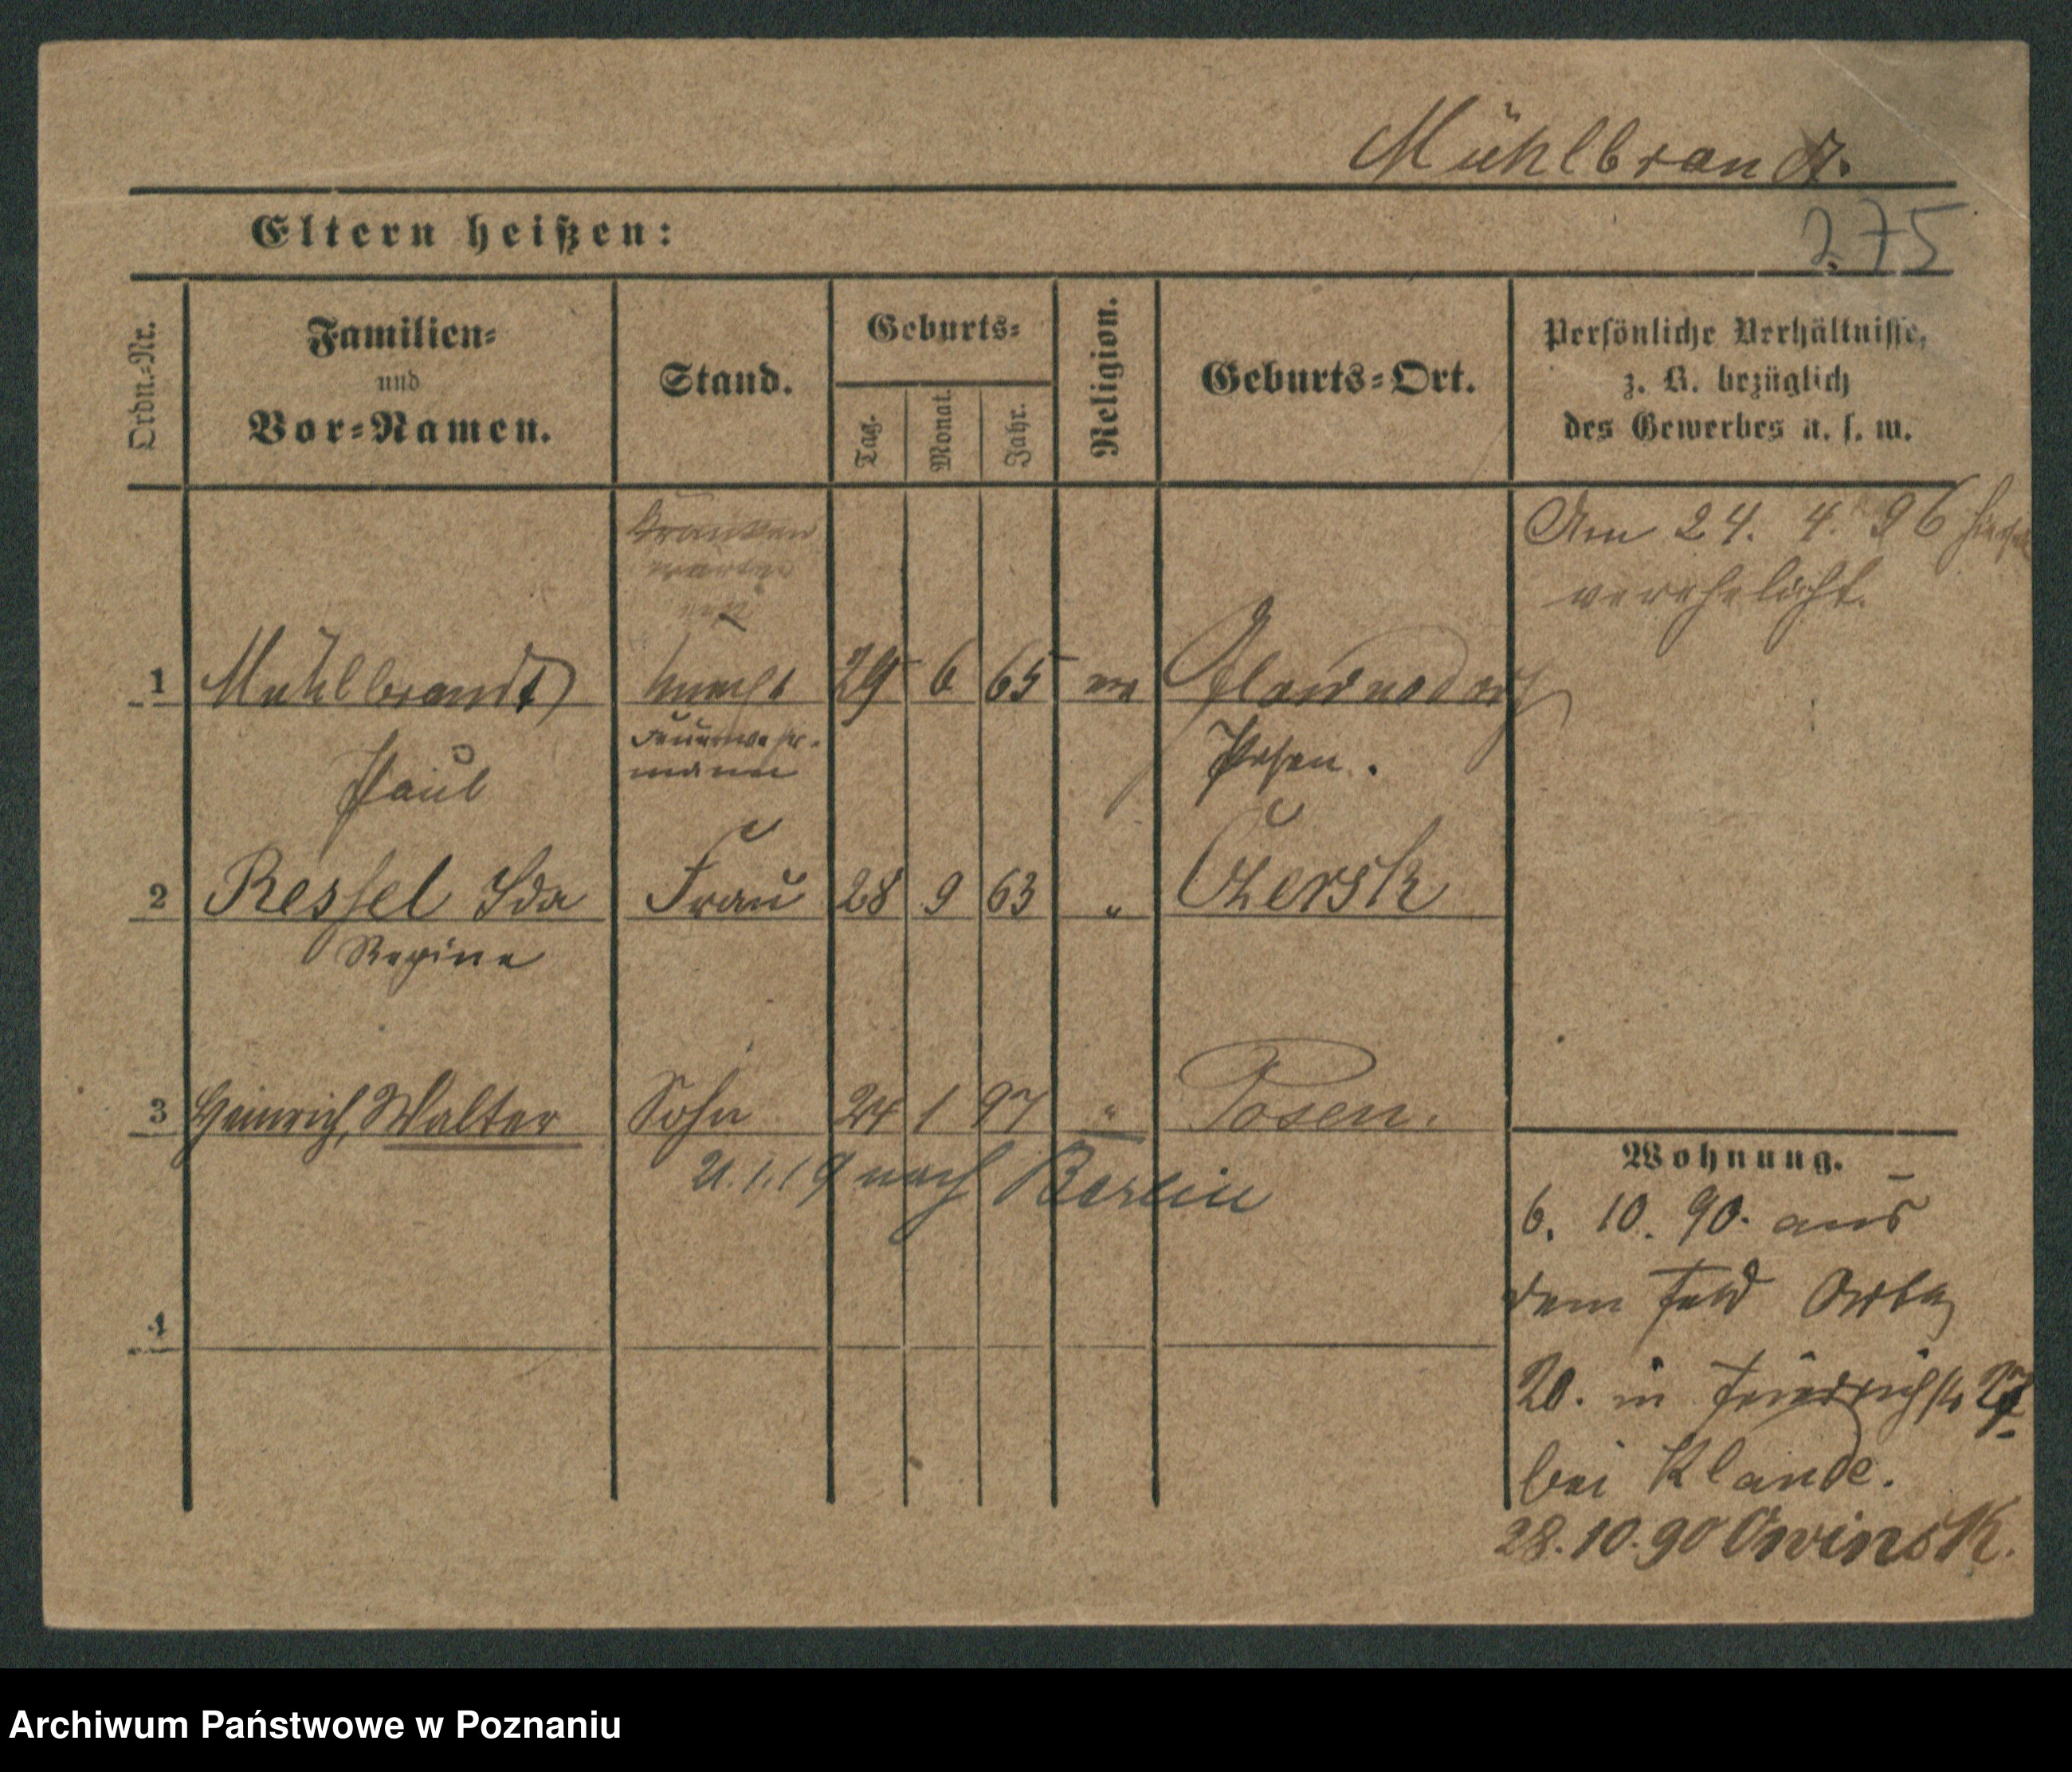 Mühlbrandt.
275
Eltern heißen:
Ordn.-Nr.
Familien-
und
Vor-Namen.
Stand.
Geburts-
Tag.
Monat.
Jahr.
Religion.
Geburts-Ort.
Persönliche Verhältnisse,
z. B. bezüglich
des Gewerbes u. s. w.
Kranken
wärter
Am 24. 4. 96
verehelicht.
1 Mühlbrandt Knecht 29 6 65
Feuerwehr-
mann
Paul
Posen.
2 Ressel Ida Frau 28 9 63 " Czersk
Regine
3 Heinrich, Walter Sohn 24 1 97 " Posen.
21.1.19 nach Berlin
4
Wohnung.
6. 10. 90. aus
dem Feld
20. in Friedrichstr 27
bei Klande.
28.10.90 Owinsk.
Archiwum Państwowe w Poznaniu